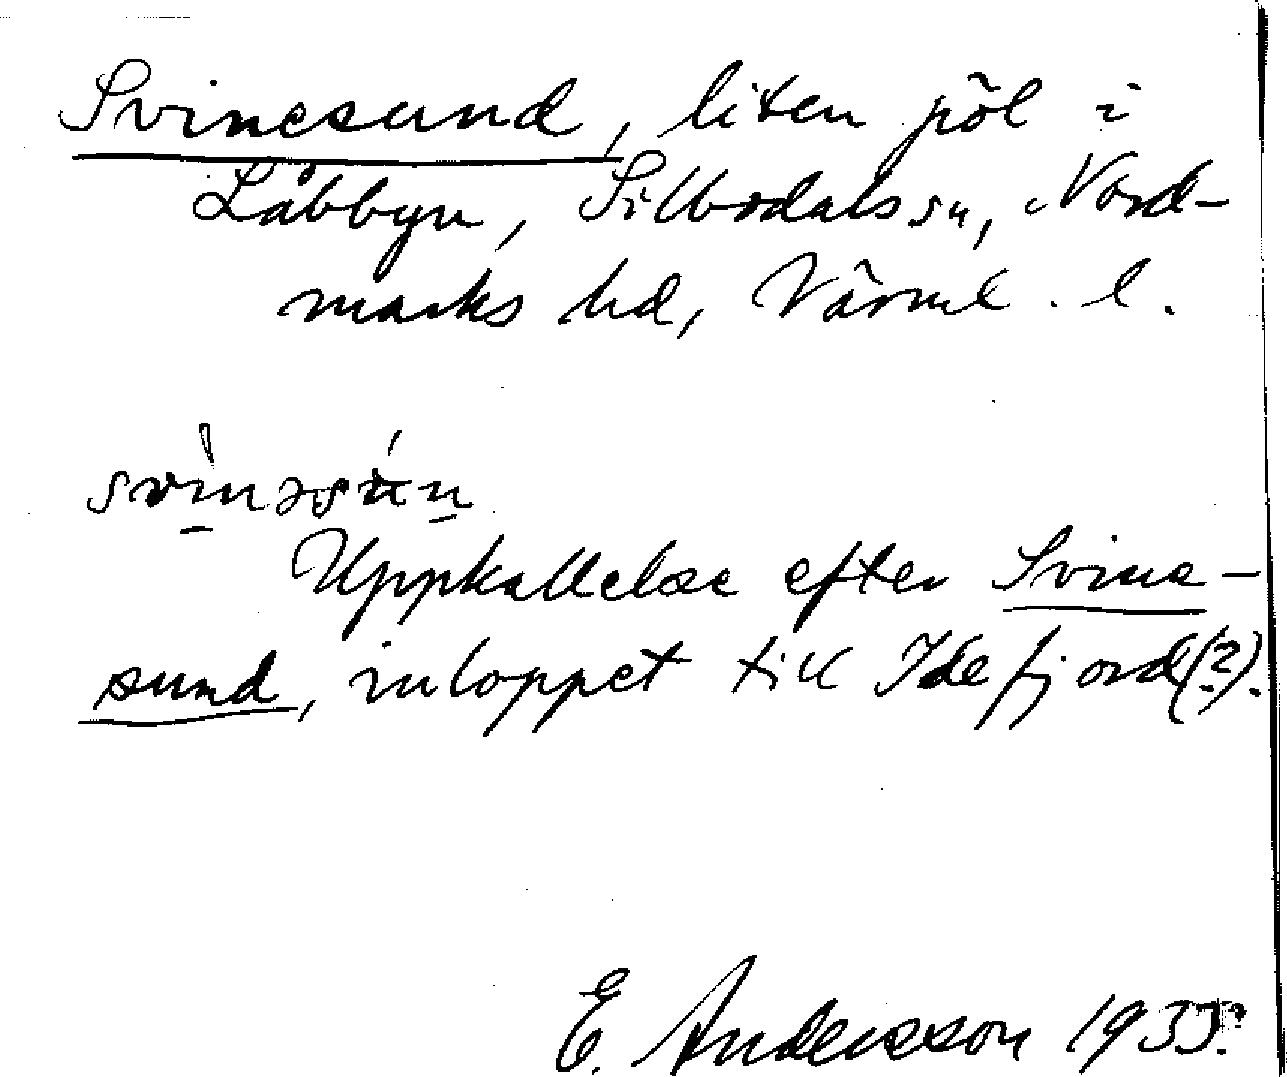 Svinesund, liten pöl i
Låbbyn, Silbodals sn, Nord-
marks hd, Värml. l.
svìnəsún
Uppkallelse efter Svine-
sund, inloppet till Idefjord(?).
E. Andersson 1933.